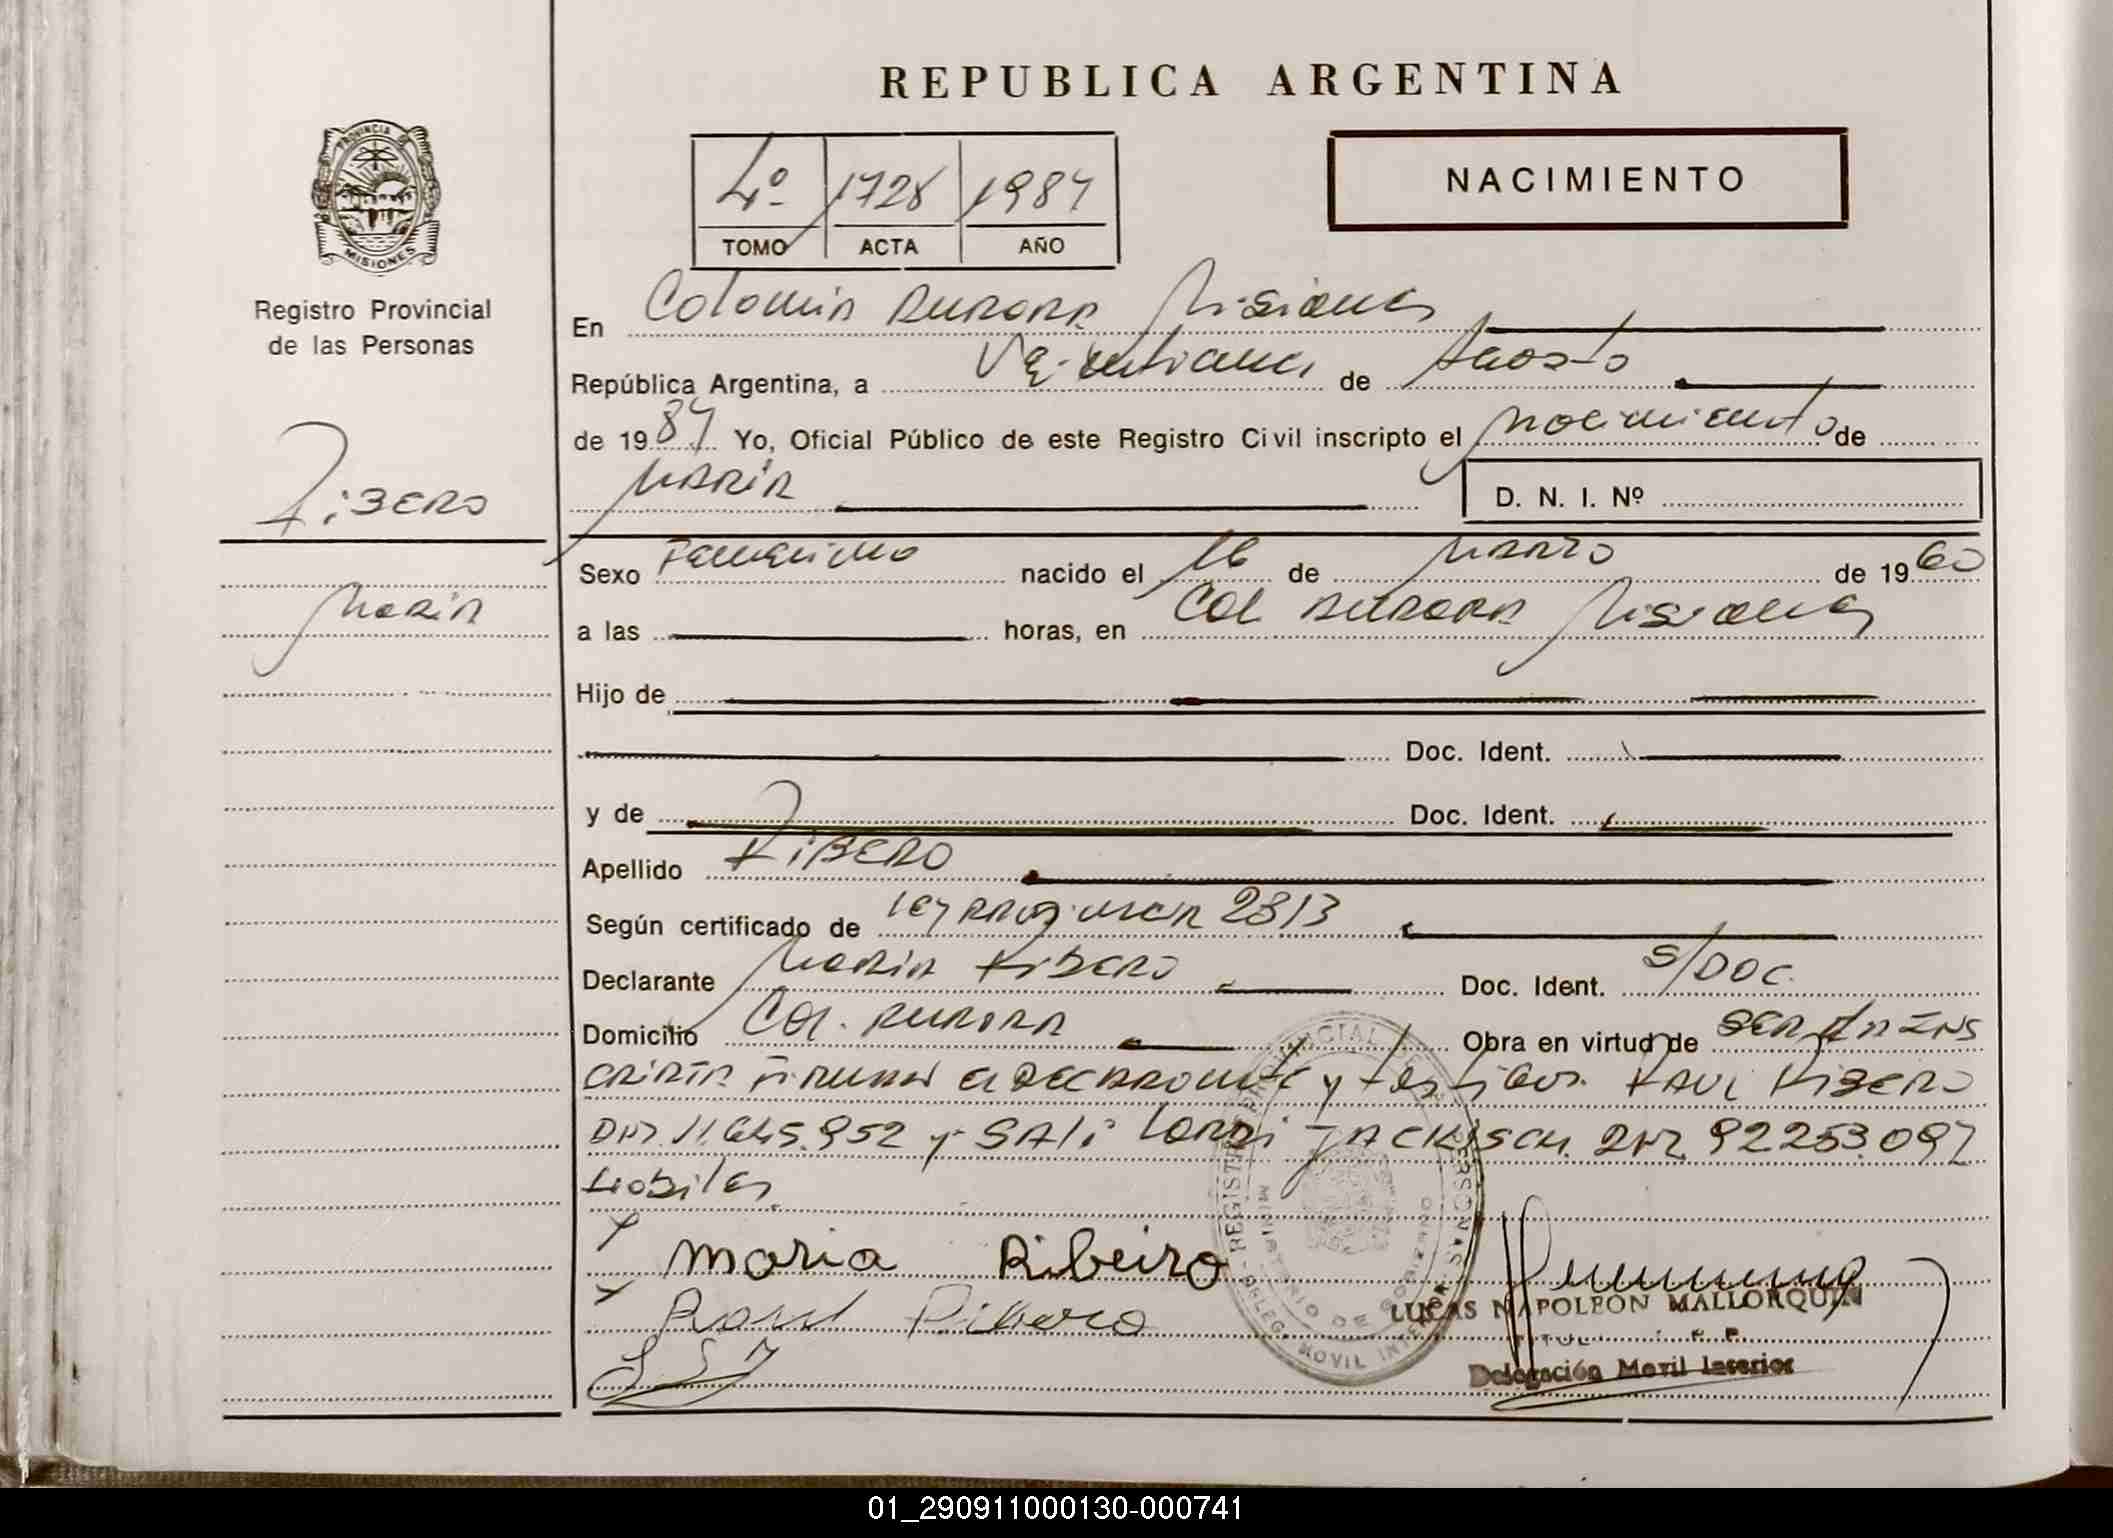 REPUBLICA ARGENTINA
PROVINCIA DE MISIONES
Registro Provincial
de las Personas
4º 1728 1984
TOMO ACTA AÑO
NACIMIENTO
En Colonia Aurora Misiones
República Argentina, a Veintiuno de Agosto
de 1984 Yo, Oficial Público de este Registro Civil inscripto el nacimiento de
Maria
D. N. I. Nº
Ribero
Maria
Sexo Femenino nacido el 16 de Marzo de 1960
a las horas, en Col Aurora Misiones
Hijo de
Doc. Ident.
y de Doc. Ident.
Apellido Ribero
Según certificado de Ley 2313
Declarante Maria Ribero Doc. Ident. S/Doc.
Domicilio Col. Aurora Obra en virtud de ser Ins
cripta firman el declarante y testigos Raul Ribero
DNI 11.645.952 y Sali Lorri Jackisch DNI 92253.097
Habiles
Maria Ribeiro
Raul Ribero
REGISTRO PROVINCIAL DE PERSONAS
MINISTERIO DE GOBIERNO
DELEG. MOVIL INTERIOR
LUCAS NAPOLEON MALLORQUIN
Delegación Movil Interior
01_290911000130-000741